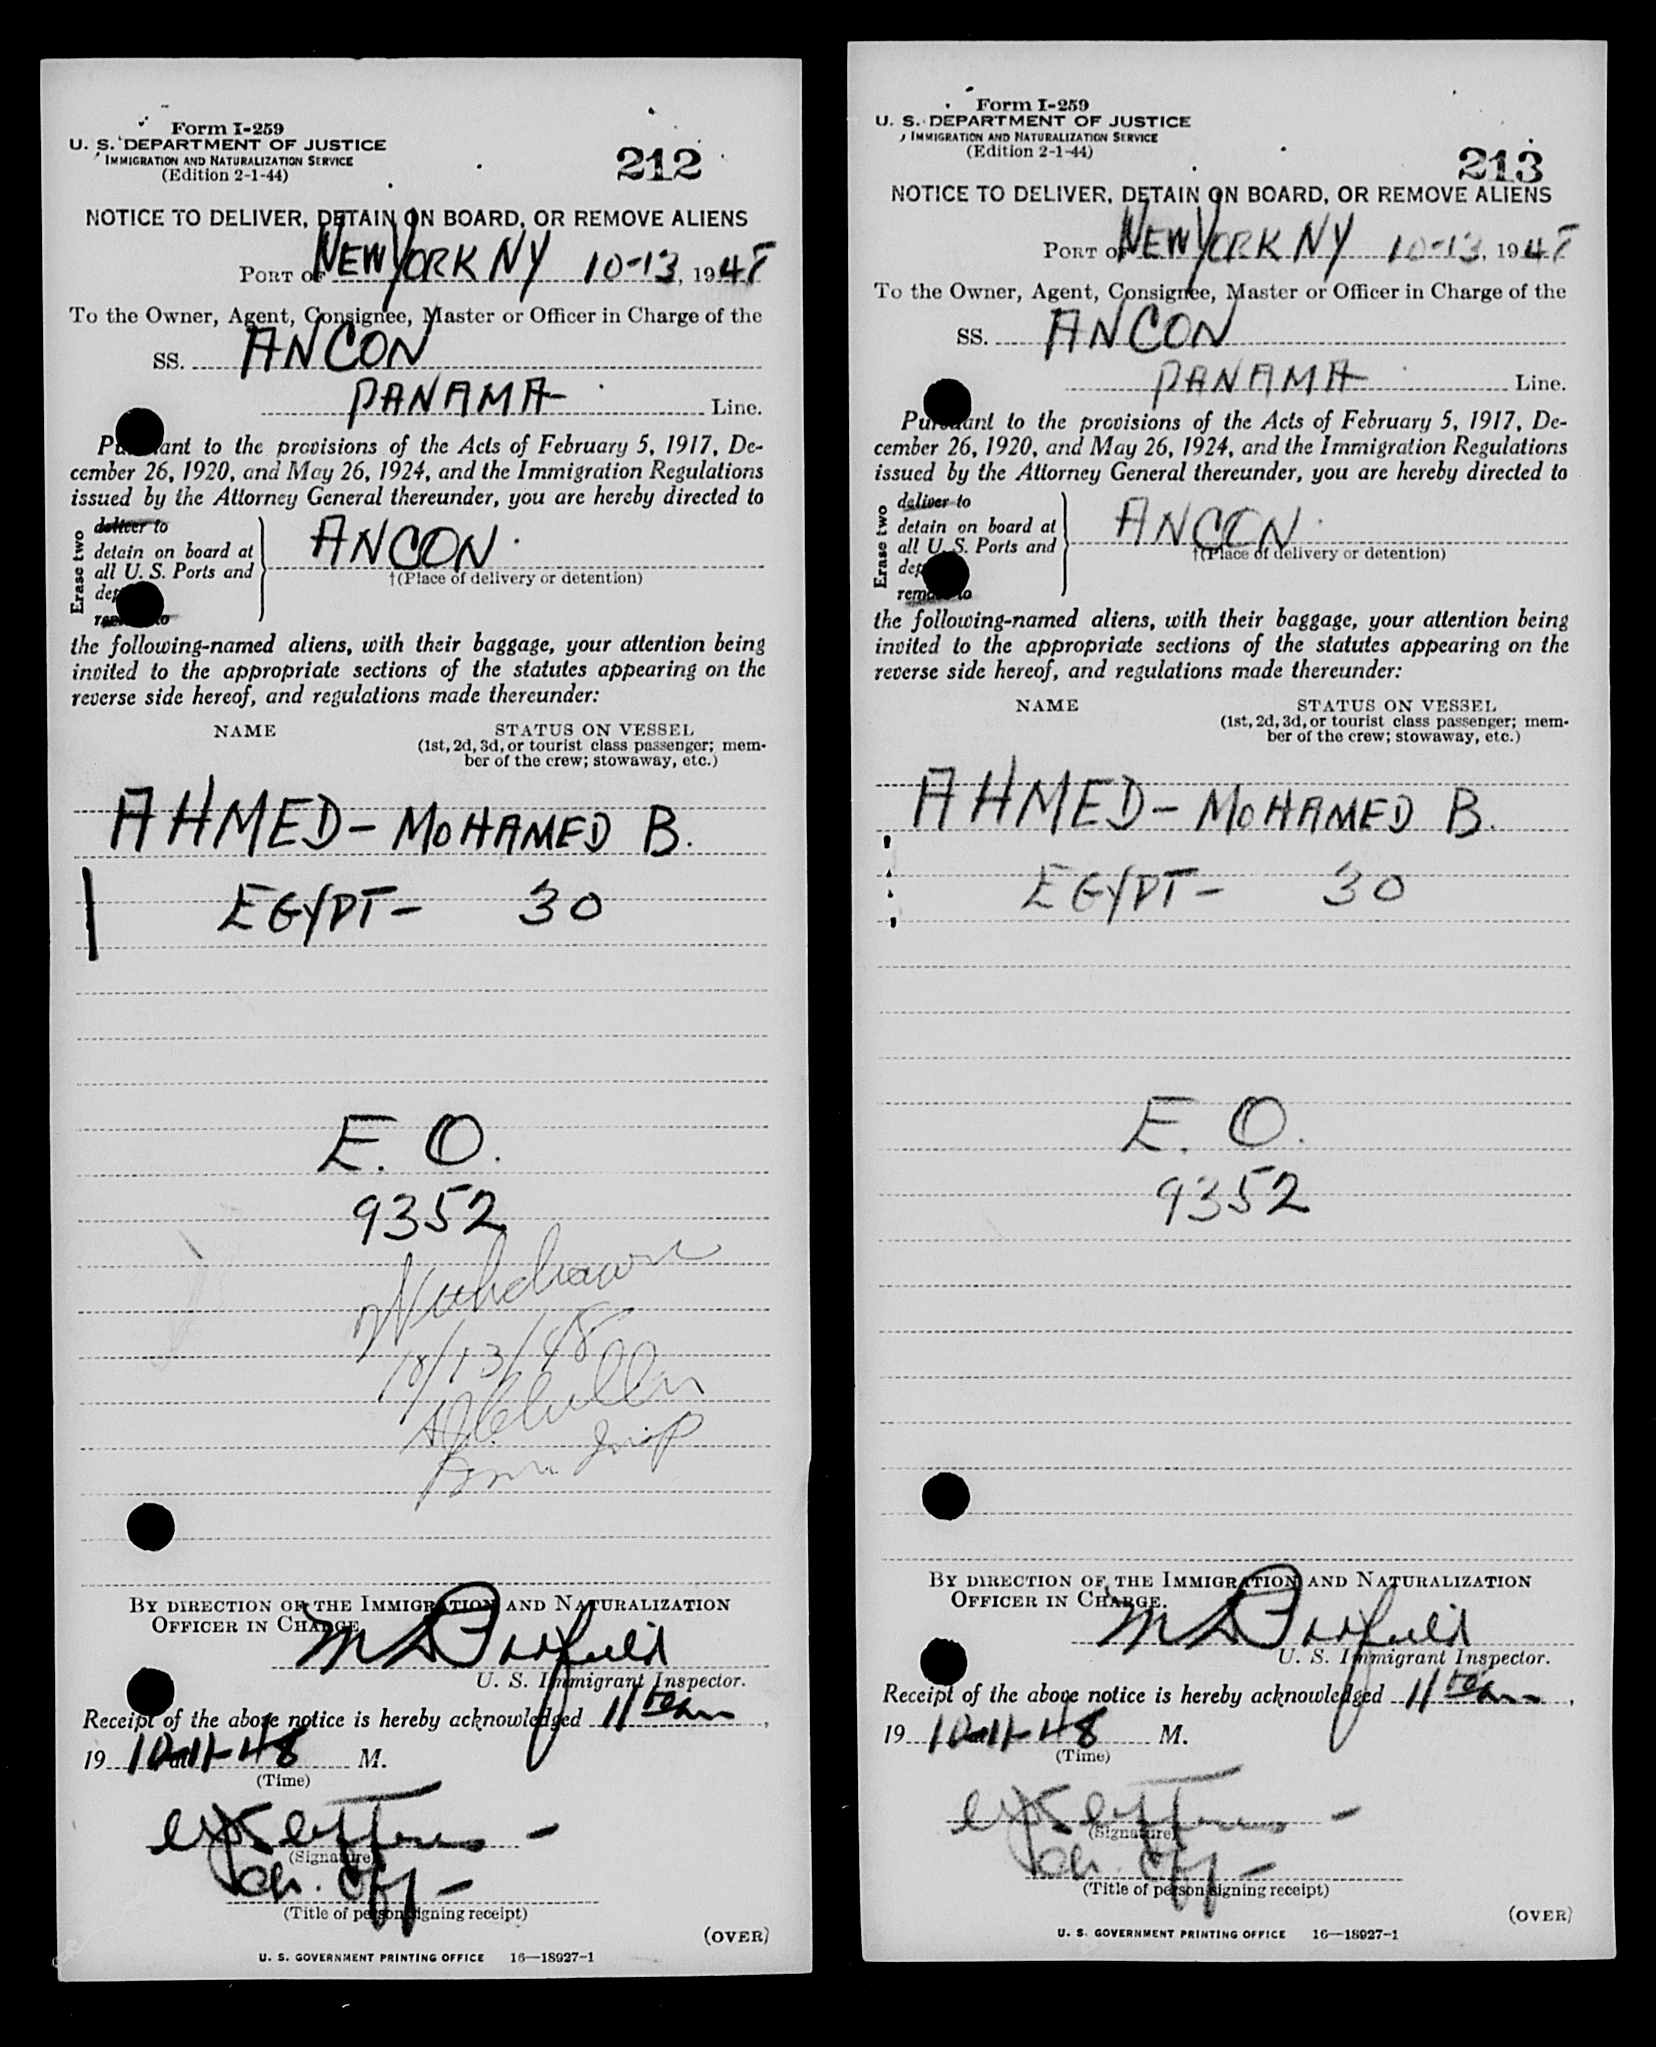 Form I-259
U. S. DEPARTMENT OF JUSTICE
IMMIGRATION AND NATURALIZATION SERVICE
(Edition 2-1-44)
212
NOTICE TO DELIVER, DETAIN ON BOARD, OR REMOVE ALIENS
PORT OF NEW YORK NY 10-13, 1948
To the Owner, Agent, Consignee, Master or Officer in Charge of the
SS. ANCON
PANAMA Line.
Pursuant to the provisions of the Acts of February 5, 1917, De-
cember 26, 1920, and May 26, 1924, and the Immigration Regulations
issued by the Attorney General thereunder, you are hereby directed to
Erase two
deliver to
detain on board at
all U. S. Ports and
remove to
ANCON
†(Place of delivery or detention)
the following-named aliens, with their baggage, your attention being
invited to the appropriate sections of the statutes appearing on the
reverse side hereof, and regulations made thereunder:
NAME STATUS ON VESSEL
(1st, 2d, 3d, or tourist class passenger; mem-
ber of the crew; stowaway, etc.)
AHMED - MOHAMED B.
EGYPT - 30
E. O.
9352
Withdrawn
10/13/48
Insp
BY DIRECTION OF THE IMMIGRATION AND NATURALIZATION
OFFICER IN CHARGE.
U. S. Immigrant Inspector.
Receipt of the above notice is hereby acknowledged
19 10-11-48 M.
(Time)
(Signature)
Ch. Off -
(Title of person signing receipt)
(OVER)
U. S. GOVERNMENT PRINTING OFFICE 16—18927-1
Form I-259
U. S. DEPARTMENT OF JUSTICE
IMMIGRATION AND NATURALIZATION SERVICE
(Edition 2-1-44)
213
NOTICE TO DELIVER, DETAIN ON BOARD, OR REMOVE ALIENS
PORT OF NEW YORK NY 10-13, 1948
To the Owner, Agent, Consignee, Master or Officer in Charge of the
SS. ANCON
PANAMA Line.
Pursuant to the provisions of the Acts of February 5, 1917, De-
cember 26, 1920, and May 26, 1924, and the Immigration Regulations
issued by the Attorney General thereunder, you are hereby directed to
Erase two
deliver to
detain on board at
all U. S. Ports and
remove to
ANCON
†(Place of delivery or detention)
the following-named aliens, with their baggage, your attention being
invited to the appropriate sections of the statutes appearing on the
reverse side hereof, and regulations made thereunder:
NAME STATUS ON VESSEL
(1st, 2d, 3d, or tourist class passenger; mem-
ber of the crew; stowaway, etc.)
AHMED - MOHAMED B.
EGYPT - 30
E. O.
9352
BY DIRECTION OF THE IMMIGRATION AND NATURALIZATION
OFFICER IN CHARGE.
U. S. Immigrant Inspector.
Receipt of the above notice is hereby acknowledged
19 10-11-48 M.
(Time)
(Signature)
Ch. Off -
(Title of person signing receipt)
(OVER)
U. S. GOVERNMENT PRINTING OFFICE 16—18927-1